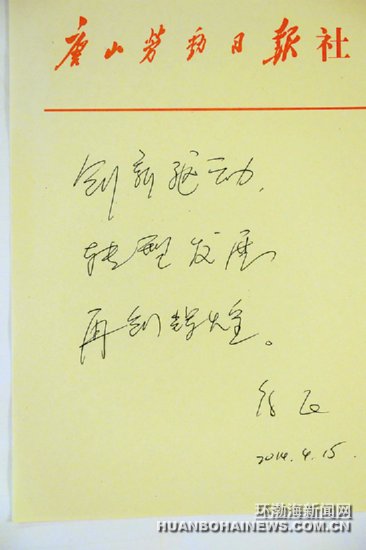 唐山劳动日报社
创新驱动，
转型发展，
再创辉煌。
2014.4.15.
环渤海新闻网
HUANBOHAINEWS.COM.CN